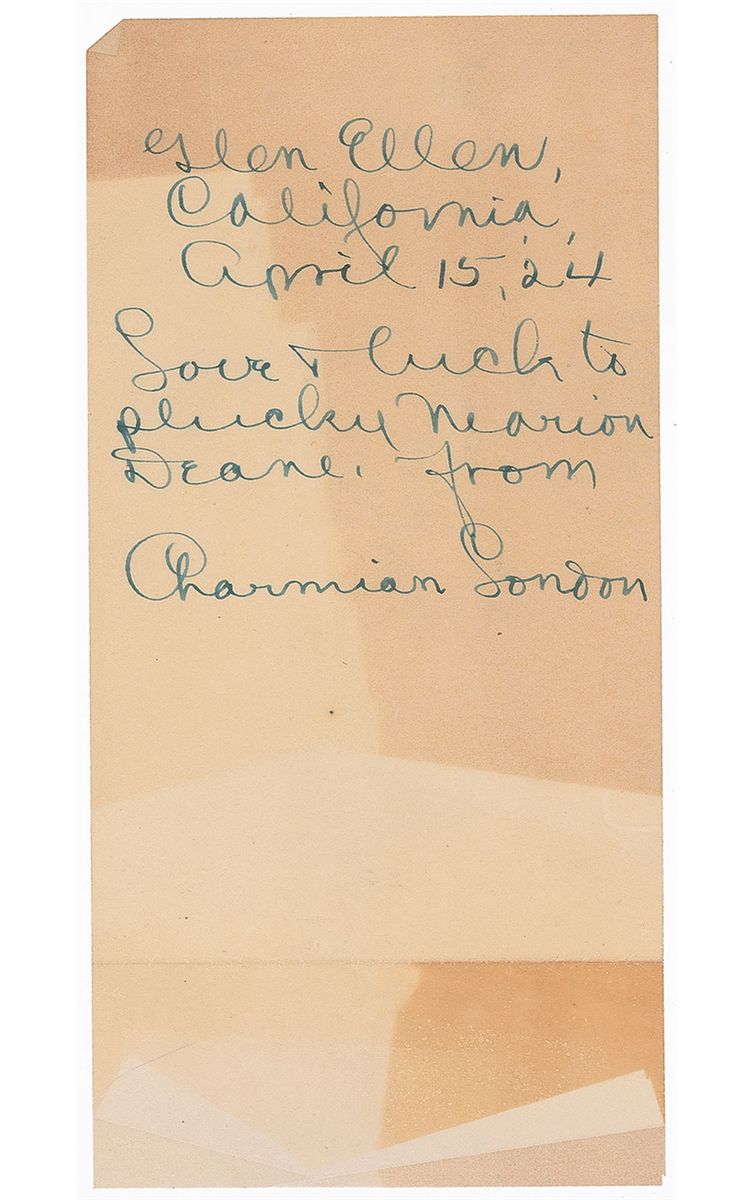 Glen Ellen,
California,
April 15, 24
Love & luck to
plucky Marion
Deane. from
Charmian London